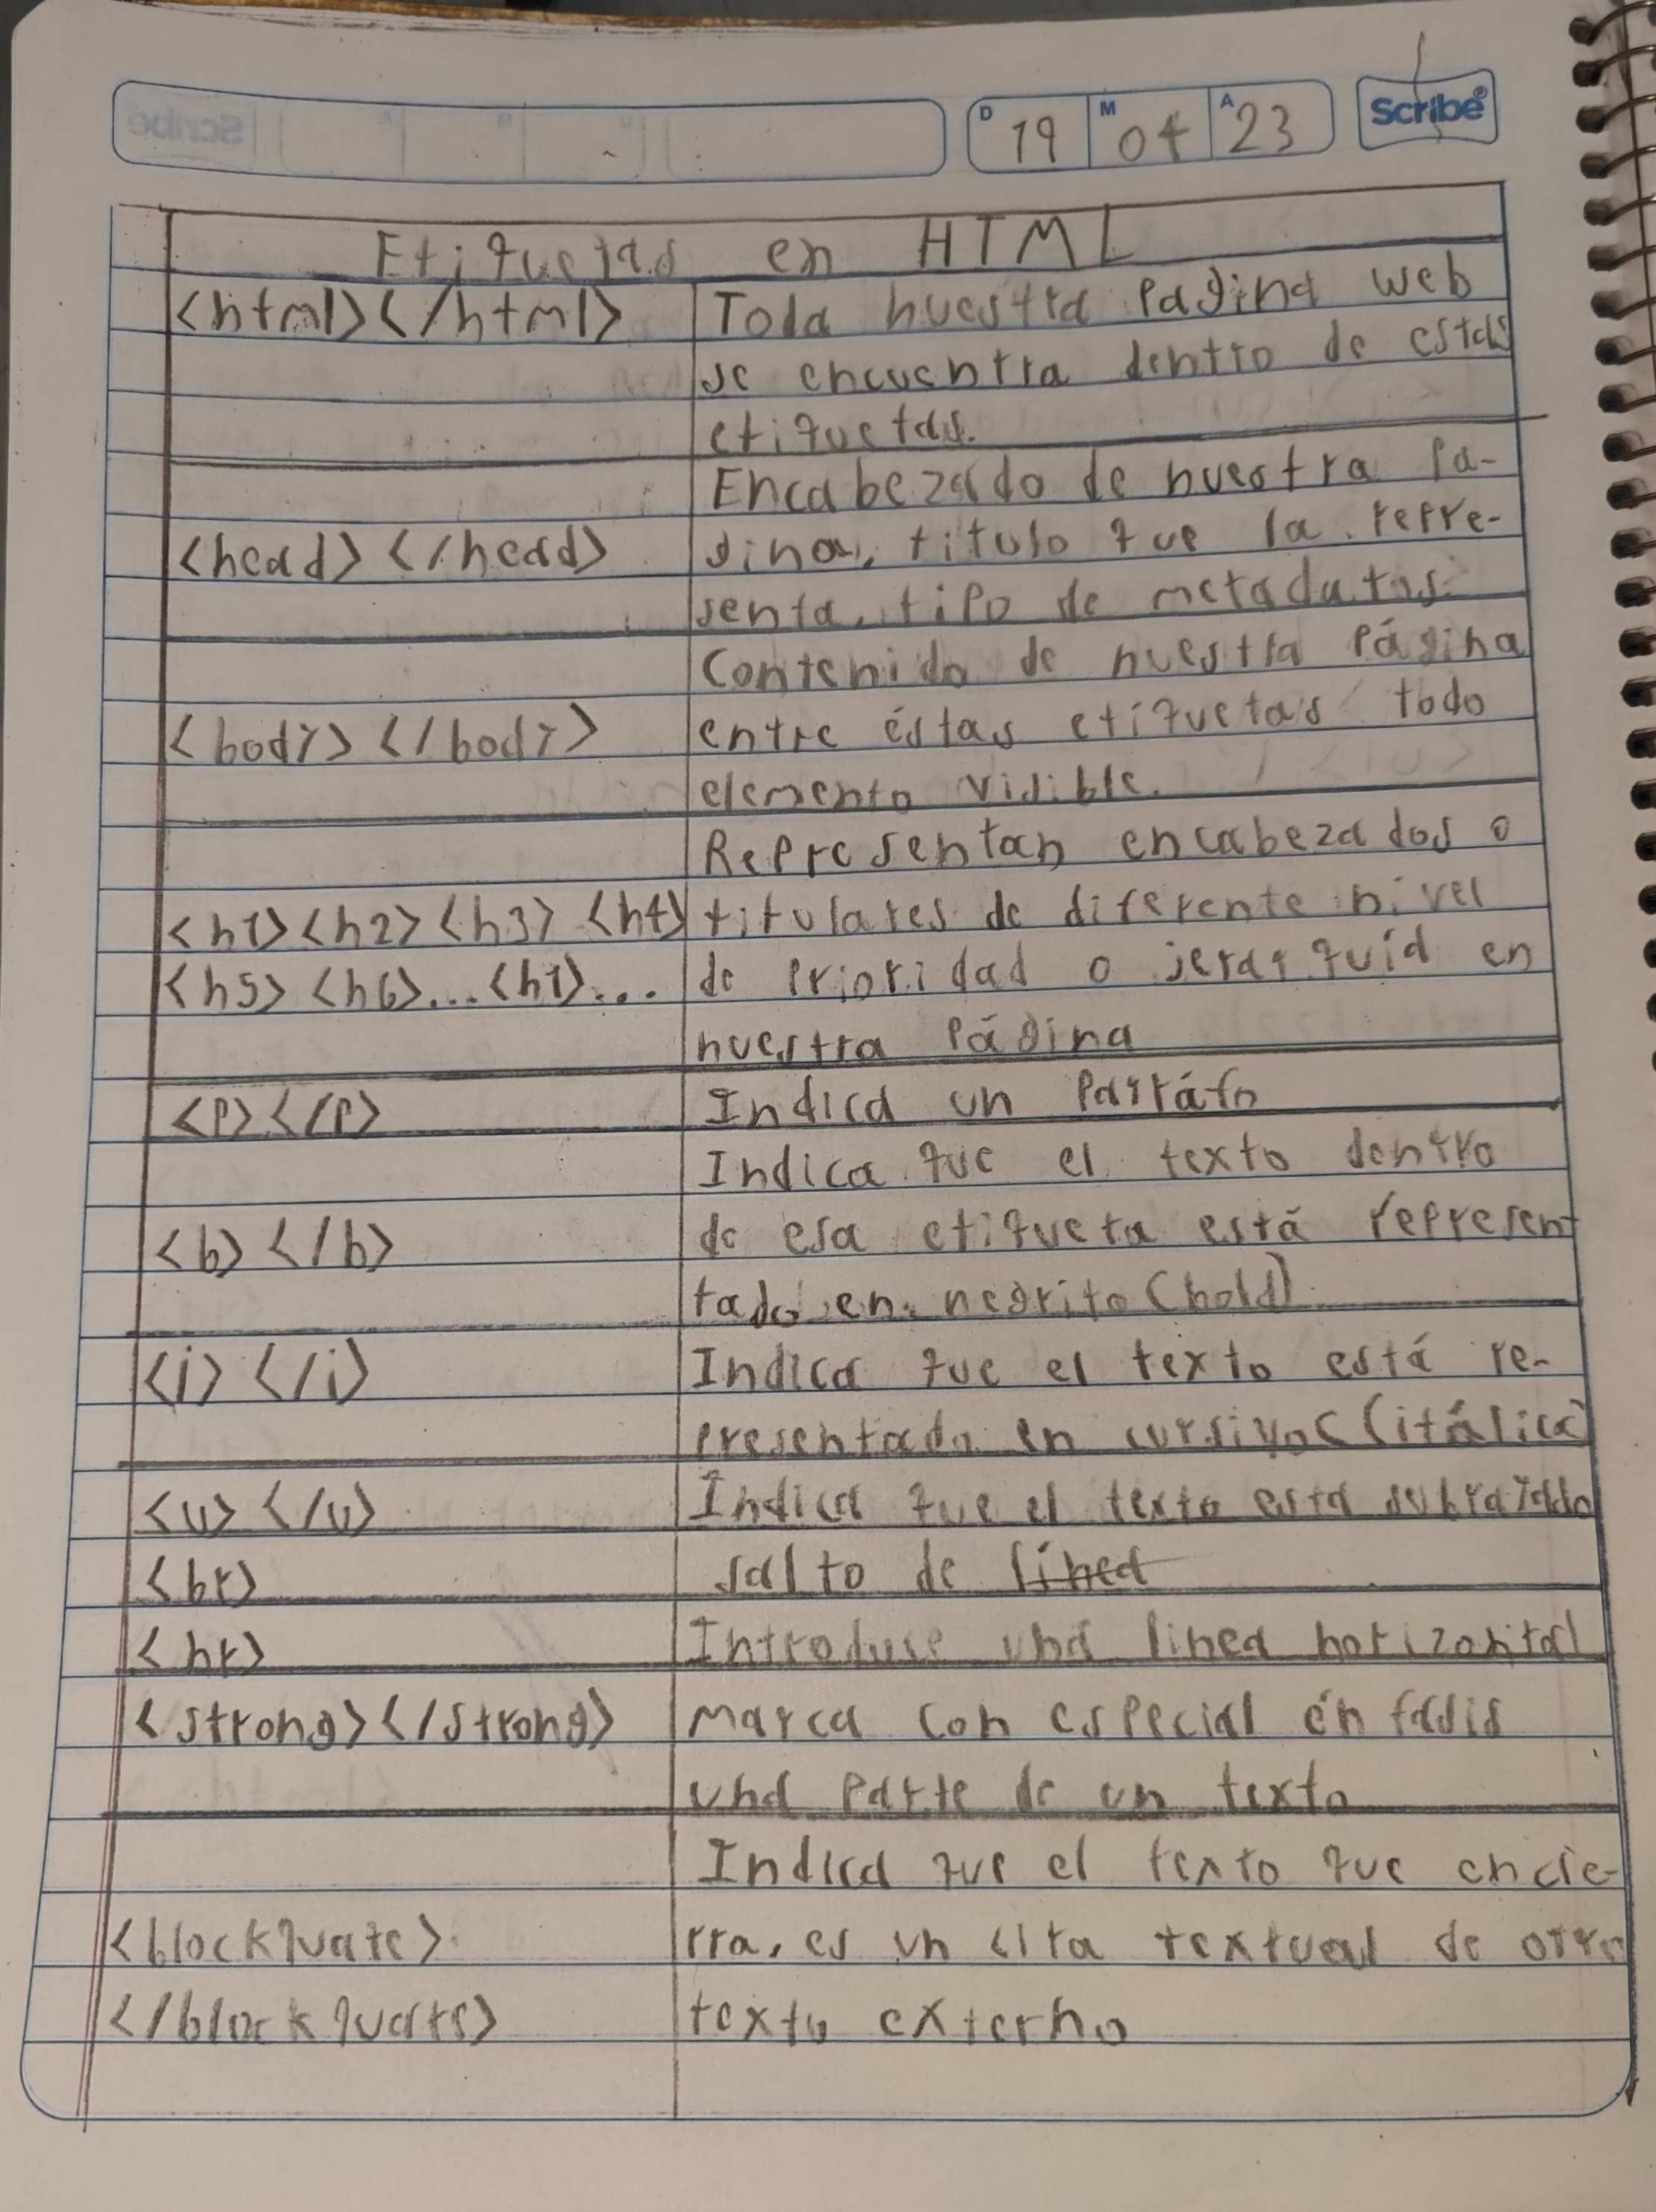 D 19 M 04 A 23 Scribe
Etiquetas en HTML
<html></html> Toda nuestra pagina web
se encuentra dentro de estas
etiquetas.
Encabezado de nuestra pa-
<head></head> gina, titulo que la repre-
senta, tipo de metadatos.
Contenido de nuestra página
<body></body> entre éstas etiquetas todo
elemento visible.
Representan encabezados o
<h1><h2><h3><h4> titulares de diferente nivel
<h5><h6>...<h1>... de prioridad o jerarquía en
nuestra página
<p></p> Indica un parráfo
Indica que el texto dentro
<b></b> de esa etiqueta está represent
tado en negrito (bold)
<i></i> Indica que el texto está re-
presentado en cursivas (itálica)
<u></u> Indica que el texto esta subrayado
<br> salto de línea
<hr> Introduse una linea horizontal
<strong></strong> Marca con especial énfasis
una parte de un texto
Indica que el texto que encie-
<blockquate> rra, es un cita textual de otro
</blockquate> texto externo